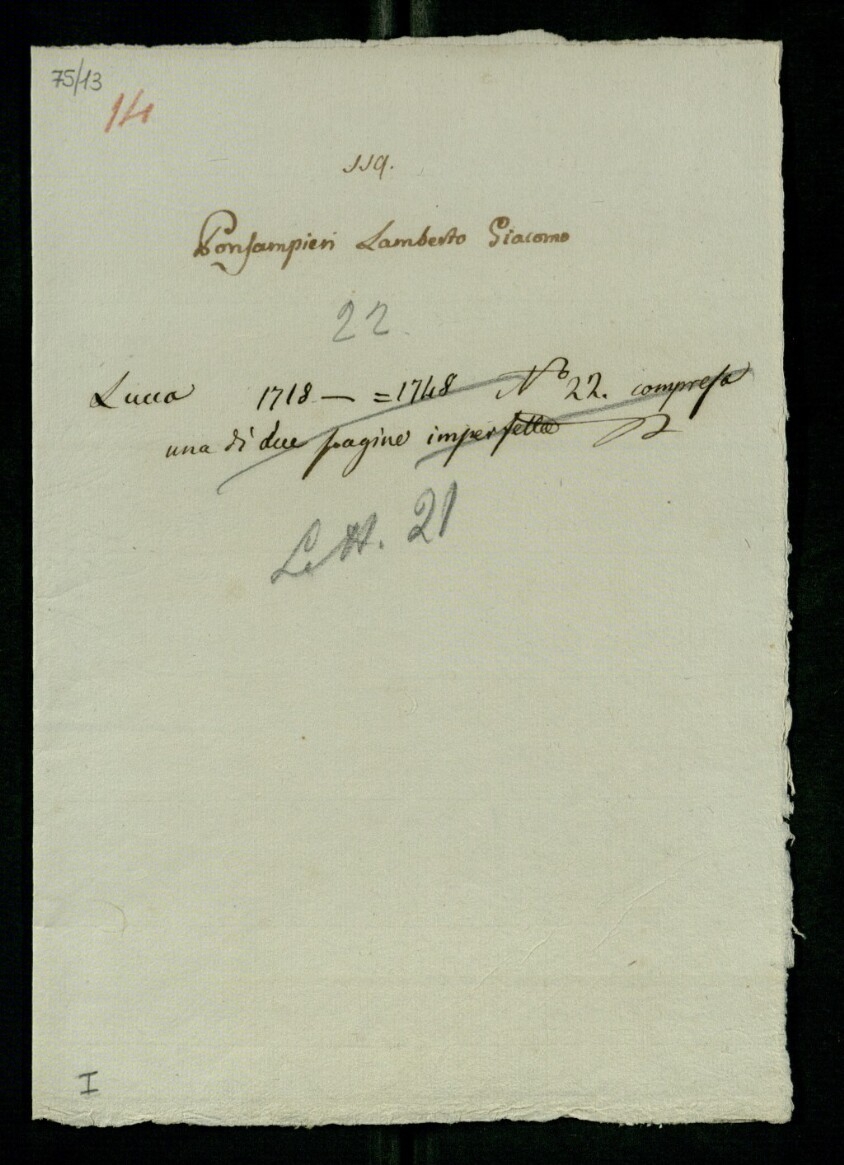 75/13
14
119.
Ponsampieri Lamberto Giacomo
22.
Lucca 1718 — = 1748 No 22. compresa
una di due pagine imperfette
Lett. 21
I